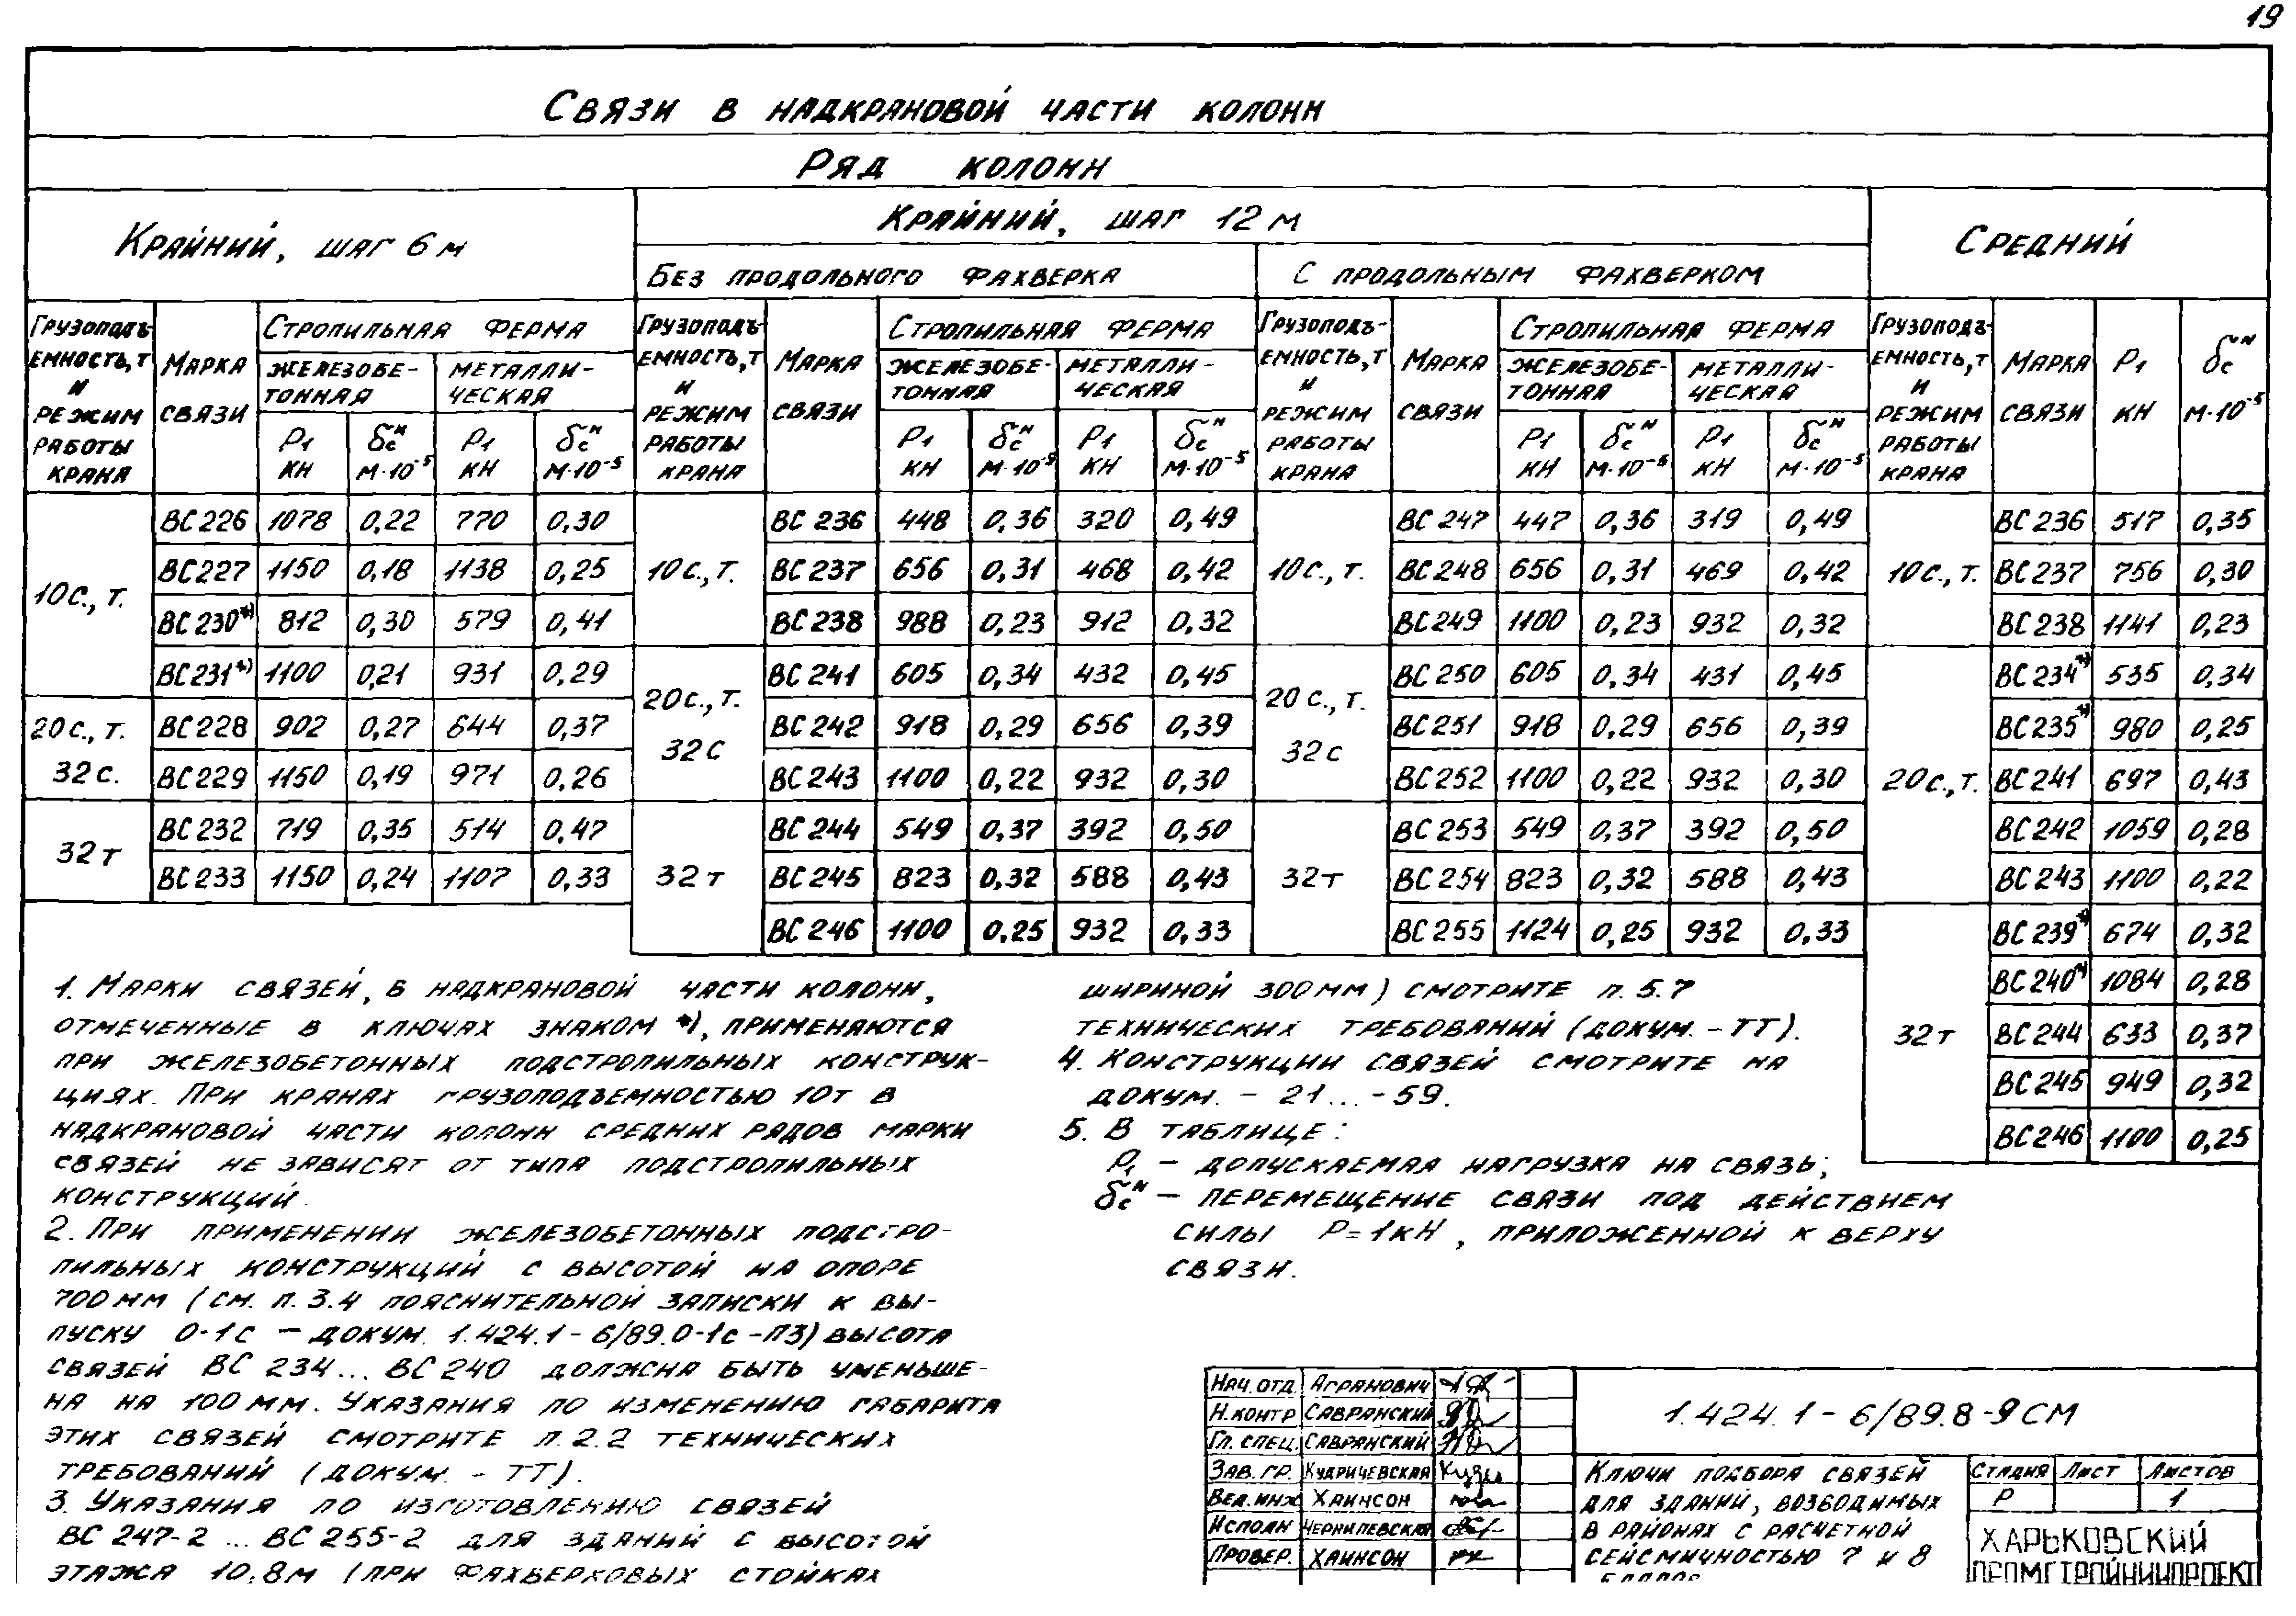 19
Связи в надкрановой части колонн
Ряд колонн
Крайний, шаг 6 м
Крайний, шаг 12 м
Средний
Без продольного фахверка
С продольным фахверком
Грузоподъемность, т и режим работы крана | Марка связи | Стропильная ферма | железобетонная | металлическая | P₁ кН | δсᴴ м·10⁻⁵ | P₁ кН | δсᴴ м·10⁻⁵
Грузоподъемность, т и режим работы крана | Марка связи | Стропильная ферма | железобетонная | металлическая | P₁ кН | δсᴴ м·10⁻⁵ | P₁ кН | δсᴴ м·10⁻⁵
Грузоподъемность, т и режим работы крана | Марка связи | Стропильная ферма | железобетонная | металлическая | P₁ кН | δсᴴ м·10⁻⁵ | P₁ кН | δсᴴ м·10⁻⁵
Грузоподъемность, т и режим работы крана | Марка связи | P₁ кН | δсᴴ м·10⁻⁵
10 с., т.
ВС 226 1078 0,22 770 0,30
ВС 227 1150 0,18 1138 0,25
ВС 230*) 812 0,30 579 0,41
ВС 231*) 1100 0,21 931 0,29
20 с., т. 32 с.
ВС 228 902 0,27 644 0,37
ВС 229 1150 0,19 971 0,26
32 т
ВС 232 719 0,35 514 0,47
ВС 233 1150 0,24 1107 0,33
10 с., т.
ВС 236 448 0,36 320 0,49
ВС 237 656 0,31 468 0,42
ВС 238 988 0,23 912 0,32
20 с., т. 32 с
ВС 241 605 0,34 432 0,45
ВС 242 918 0,29 656 0,39
ВС 243 1100 0,22 932 0,30
32 т
ВС 244 549 0,37 392 0,50
ВС 245 823 0,32 588 0,43
ВС 246 1100 0,25 932 0,33
10 с., т.
ВС 247 447 0,36 319 0,49
ВС 248 656 0,31 469 0,42
ВС 249 1100 0,23 932 0,32
20 с., т. 32 с
ВС 250 605 0,34 431 0,45
ВС 251 918 0,29 656 0,39
ВС 252 1100 0,22 932 0,30
32 т
ВС 253 549 0,37 392 0,50
ВС 254 823 0,32 588 0,43
ВС 255 1124 0,25 932 0,33
10 с., т.
ВС 236 517 0,35
ВС 237 756 0,30
ВС 238 1141 0,23
20 с., т.
ВС 234*) 535 0,34
ВС 235*) 980 0,25
ВС 241 697 0,43
ВС 242 1059 0,28
ВС 243 1100 0,22
32 т
ВС 239*) 674 0,32
ВС 240*) 1084 0,28
ВС 244 633 0,37
ВС 245 949 0,32
ВС 246 1100 0,25
1. Марки связей, в надкрановой части колонн,
отмеченные в ключах знаком *), применяются
при железобетонных подстропильных конструк-
циях. При кранах грузоподъемностью 10т в
надкрановой части колонн средних рядов марки
связей не зависят от типа подстропильных
конструкций.
2. При применении железобетонных подстро-
пильных конструкций с высотой на опоре
700 мм (см. п. 3.4 пояснительной записки к вы-
пуску 0-1с – докум. 1.424.1-6/89.0-1с-ПЗ) высота
связей ВС 234... ВС 240 должна быть уменьше-
на на 100 мм. Указания по изменению габарита
этих связей смотрите п. 2.2 технических
требований (докум. - ТТ).
3. Указания по изготовлению связей
ВС 247-2 ... ВС 255-2 для зданий с высотой
этажа 10.8м (при фахверковых стойках
шириной 300 мм) смотрите п. 5.7
технических требований (докум. - ТТ).
4. Конструкции связей смотрите на
докум. - 21 ... - 59.
5. В таблице:
P₁ – допускаемая нагрузка на связь;
δсᴴ – перемещение связи под действием
силы P=1кН, приложенной к верху
связи.
Нач. отд. Агранович
Н. контр Савранский
Гл. спец. Савранский
Зав. гр. Кудричевская
Вед. инж Хаинсон
Исполн Чернилевская
Провер. Хаинсон
1.424.1-6/89.8-9СМ
Ключи подбора связей
для зданий, возводимых
в районах с расчетной
сейсмичностью 7 и 8
баллов
Стадия Лист Листов
Р 1
Харьковский
Промстройниипроект